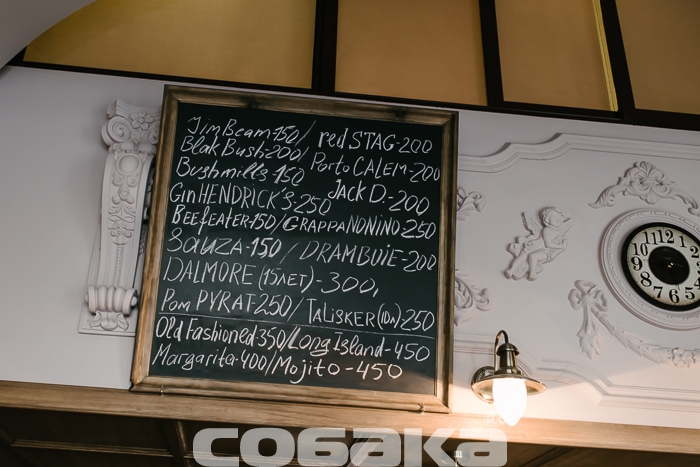 Jim Beam-150/ red STAG-200
Blak Bush-200/ Porto CALEM-200
Bushmills-150
Jack D.-200
Gin HENDRICK'S-250
BEEFEATER-150/GRAPPA NONINO-250
SAUZA-150 / DRAMBUiE-200
DALMORE (15ЛЕТ)-300,
Ром PYRAT-250/ TALiSKER (10л) 250
Old Fashioned-350/Long Island-450
Margarita-400/Mojito-450
12 1 2 3 4 5 6 7 8 9 10 11
СОБАКА